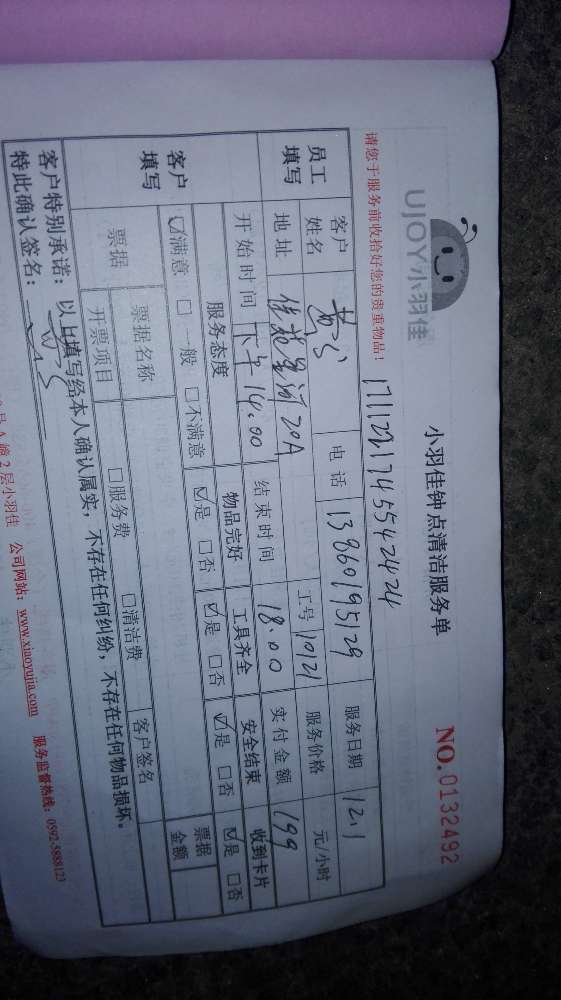 UJOY小羽佳
小羽佳钟点清洁服务单
NO.0132492
请您于服务前收拾好您的贵重物品！
1711221745542424
员工填写 客户姓名 电话 13860195129 服务日期 12.1
地址 20A 工号 10121 服务价格 元/小时
开始时间 下午14.00 结束时间 18.00 实付金额 199
客户填写 服务态度 物品完好 工具齐全 安全结束 收到卡片
☑满意 □一般 □不满意 ☑是 □否 ☑是 □否 ☑是 □否 ☑是 □否
票据 票据名称 □服务费 □清洁费 客户签名 票据金额
开票项目
客户特别承诺：以上填写经本人确认属实，不存在任何纠纷，不存在任何物品损坏。
特此确认签名：
2层小羽佳 公司网站：www.xiaoyujia.com 服务监督热线：0592-5888123